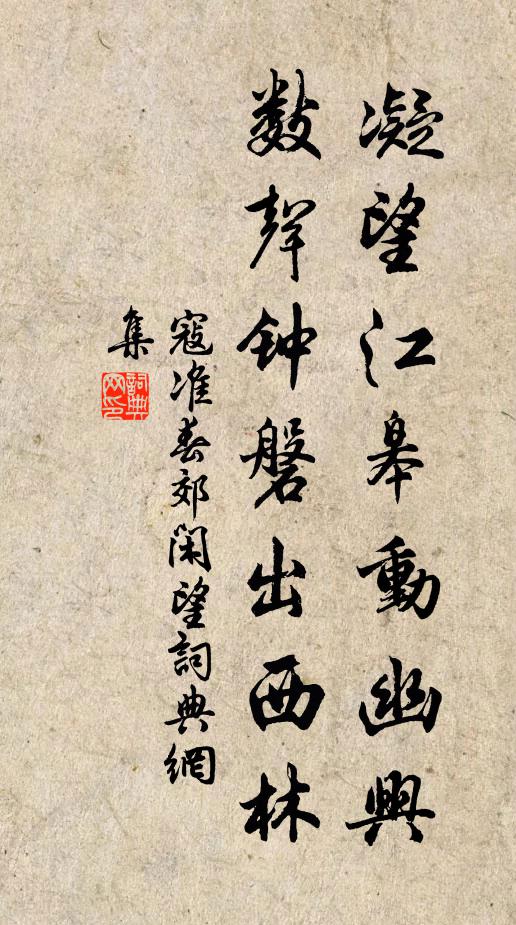 凝望江皋動幽興
數聲钟磐出西林
寇准春郊闲望詞典網
集
詞典网印